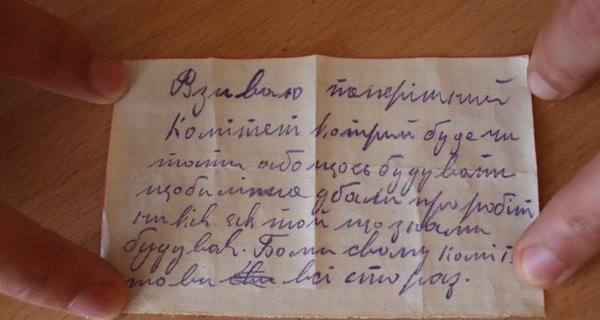 Взиваю теперішний
Комітет котрий буде чи
тати або щось будувати
щоби ліпше дбали про робіт
ників як той що з нами
будував. Боми свому коміте
тови всі сто раз.